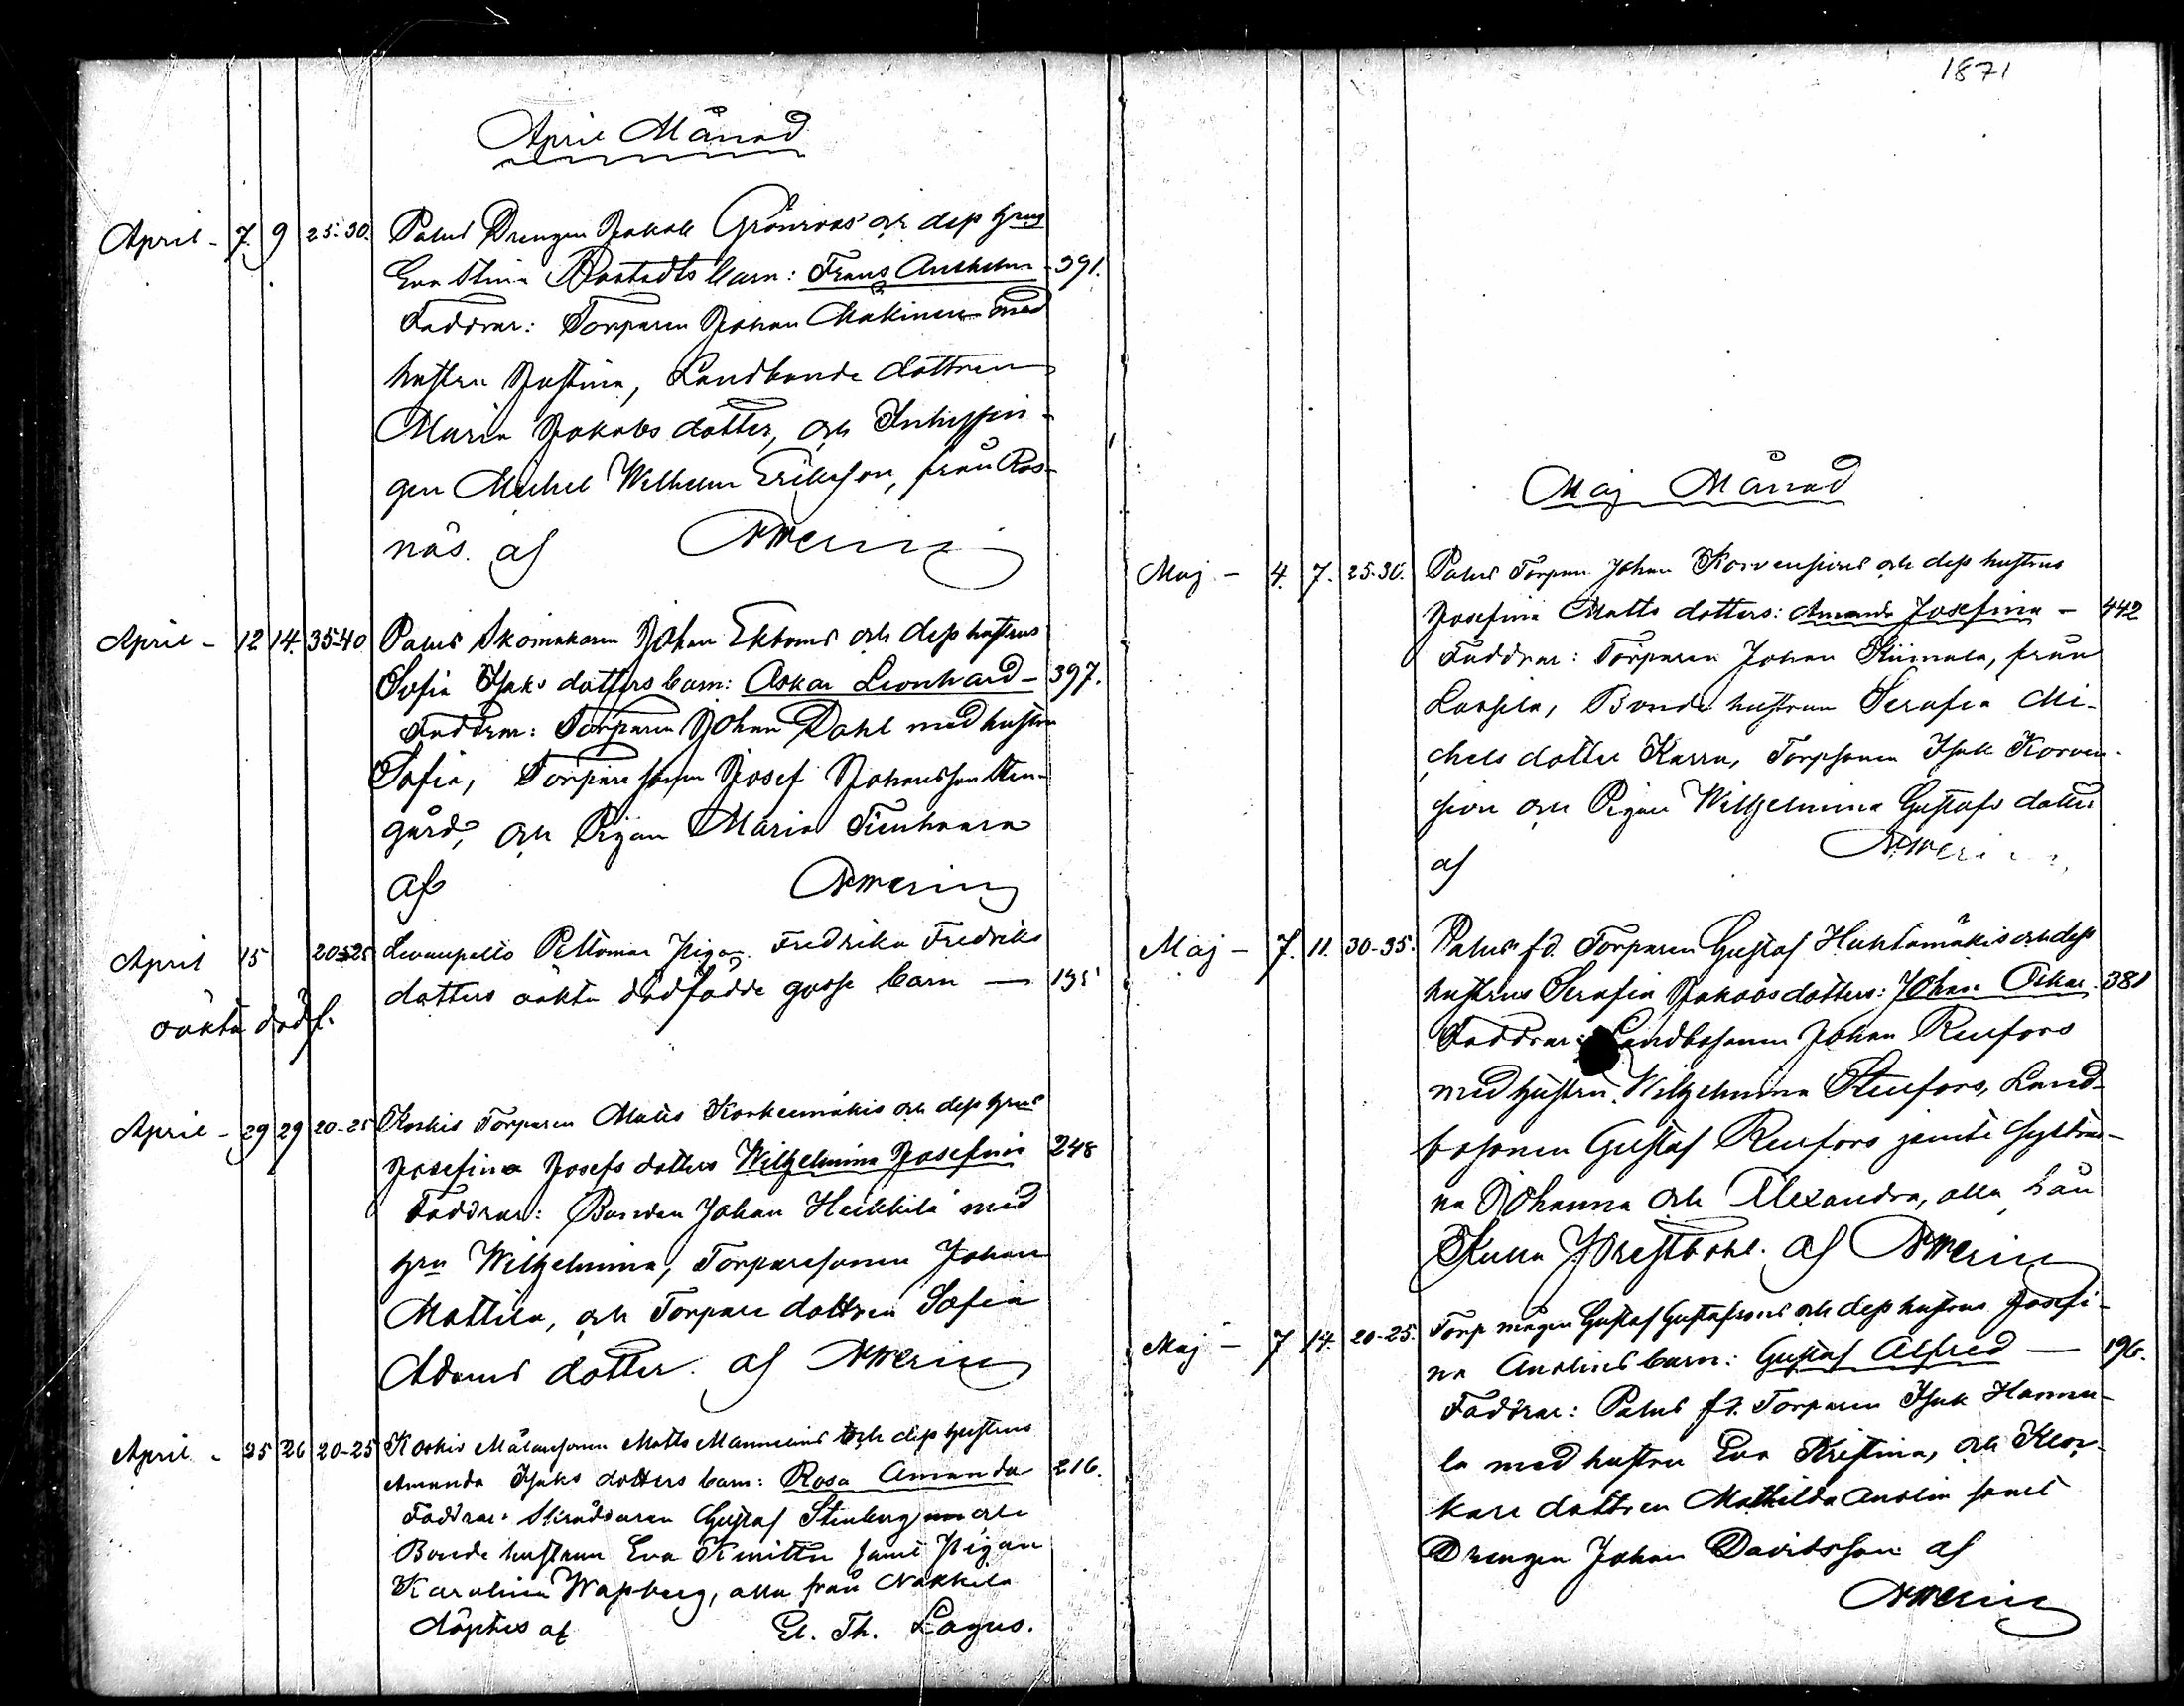 1871
April Månad
April - 7. 9 25-30. Palus Drengen Jakob Grönroos och dess hrus
Eva Stina Bostedts barn: Frans Anshelm - 391.
Faddrar: Torparen Johan Mäkinen med
hustru Justina, Landbonde dottren
Maria Jakobs dotter, och Inhysin-
gen Michel Wilhelm Eriksson, från Ros-
näs. af
April - 12 14. 35-40 Palus Skomakaren Johan Ekboms och dess hustrus
Sofia Isaks dotters barn: Oskar Leonhard - 397.
Faddrar: Torparen Johan Dahl med hustru
Sofia, Torpare sonen Josef Johansson Sten-
gård, och Pigan Maria Tienhaara
af
April 15 20-25 Levanpelto Peltomaa pigan Fredrika Fredriks
dotters oäkta dödfödde gosse barn — 195
oäkta dödf.
April - 29 29 20-25 Koskis Torparen Matts Korkeemäkis och dess hrus
Josefina Josefs dotters Wilhelmina Josefina 248
Faddrar: Bonden Johan Heikkilä med
hru Wilhelmina, Torparesonen Johan
Mattila, och Torpare dottren Sofia
Adams dotter. af
April - 25 26 20-25 Koskis Målaresonen Matts Mannelins och dess hustrus
Amanda Isaks dotters barn: Rosa Amanda 216.
Faddrar: Skräddaren Gustaf Stenberg och
Bonde hustrun Eva Knuittu samt Pigan
Karolina Wassberg, alla från Nakkila
döptes af El. Th. Lagus.
Maj Månad
Maj - 4. 7. 25-30. Palus Torparen Johan Korvensivus och dess hustrus
Josefina Matts dotters: Amanda Josefina - 442
Faddrar: Torparen Johan Kiimala, från
Lassila, Bonde hustrun Serafia Mi-
chels dotter Karra, Torpsonen Isak Korven-
sivu och Pigan Wilhelmina Gustafs dotter
af
Maj - 7. 11. 30-35. Palus f.d. Torparen Gustaf Huhtamäkis och dess
hustrus Serafia Jakobsdotters: Johan Oskar. 381
Faddrar: Landbosonen Johan Renfors
med hustru Wilhelmina Renfors, Land-
bosonen Gustaf Renfors jemte systrar-
na Johanna och Alexandra, alla från
Kulla Prestbohl. af
Maj - 7 14. 20-25. Torp mågen Gustaf Gustafssons och dess hustrus Josefi-
na Anolins barn: Gustaf Alfred — 196.
Faddrar: Palus f.d. Torparen Isak Hannu-
la med hustru Eva Kristina, och Kloc-
kare dottren Mathilda Anolin samt
Drengen Johan Davidsson af